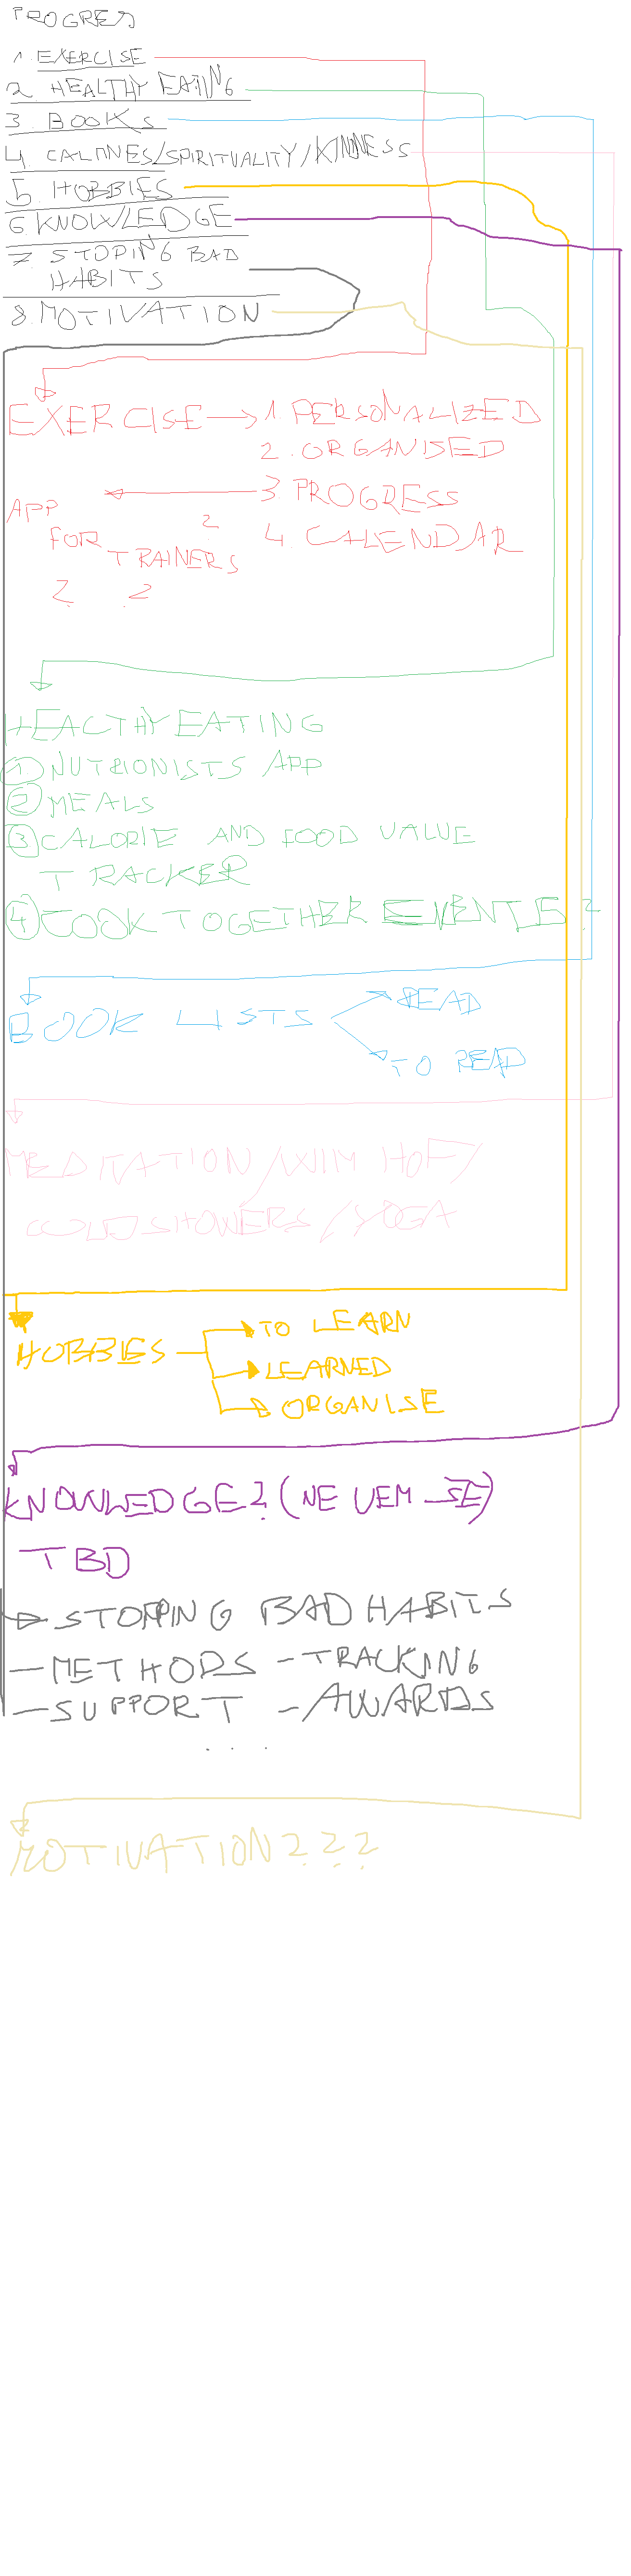 PROGRES
1. EXERCISE
2. HEALTHY EATING
3. BOOKS
4. CALMNES/SPIRITUALITY/KINDNESS
5. HOBBIES
6 KNOWLEDGE
7. STOPING BAD
HABITS
8. MOTIVATION
EXERCISE → 1. PERSONALIZED
2. ORGANISED
3 PROGRESS
4. CALENDAR
APP
FOR TRAINERS ?
? ?
HEALTHY EATING
1 NUTRIONISTS APP
2 MEALS
3 CALORIE AND FOOD VALUE
TRACKER
4 COOK TOGETHER EVENTS?
BOOK LISTS
READ
TO READ
MEDITATION/WIM HOF/
COLD SHOWERS/YOGA
HOBBIES
TO LEARN
LEARNED
ORGANISE
KNOWLEDGE? (NE VEM ŠE)
TBD
STOPPING BAD HABITS
- METHODS - TRACKING
- SUPPORT - AWARDS
. . .
MOTIVATION???